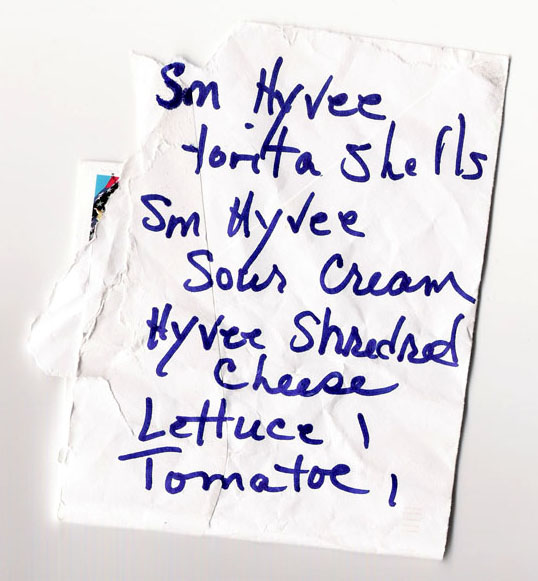 Sm Hyvee
torita Shells
Sm Hyvee
Sour Cream
Hyvee Shredred
Cheese
Lettuce 1
Tomatoe 1